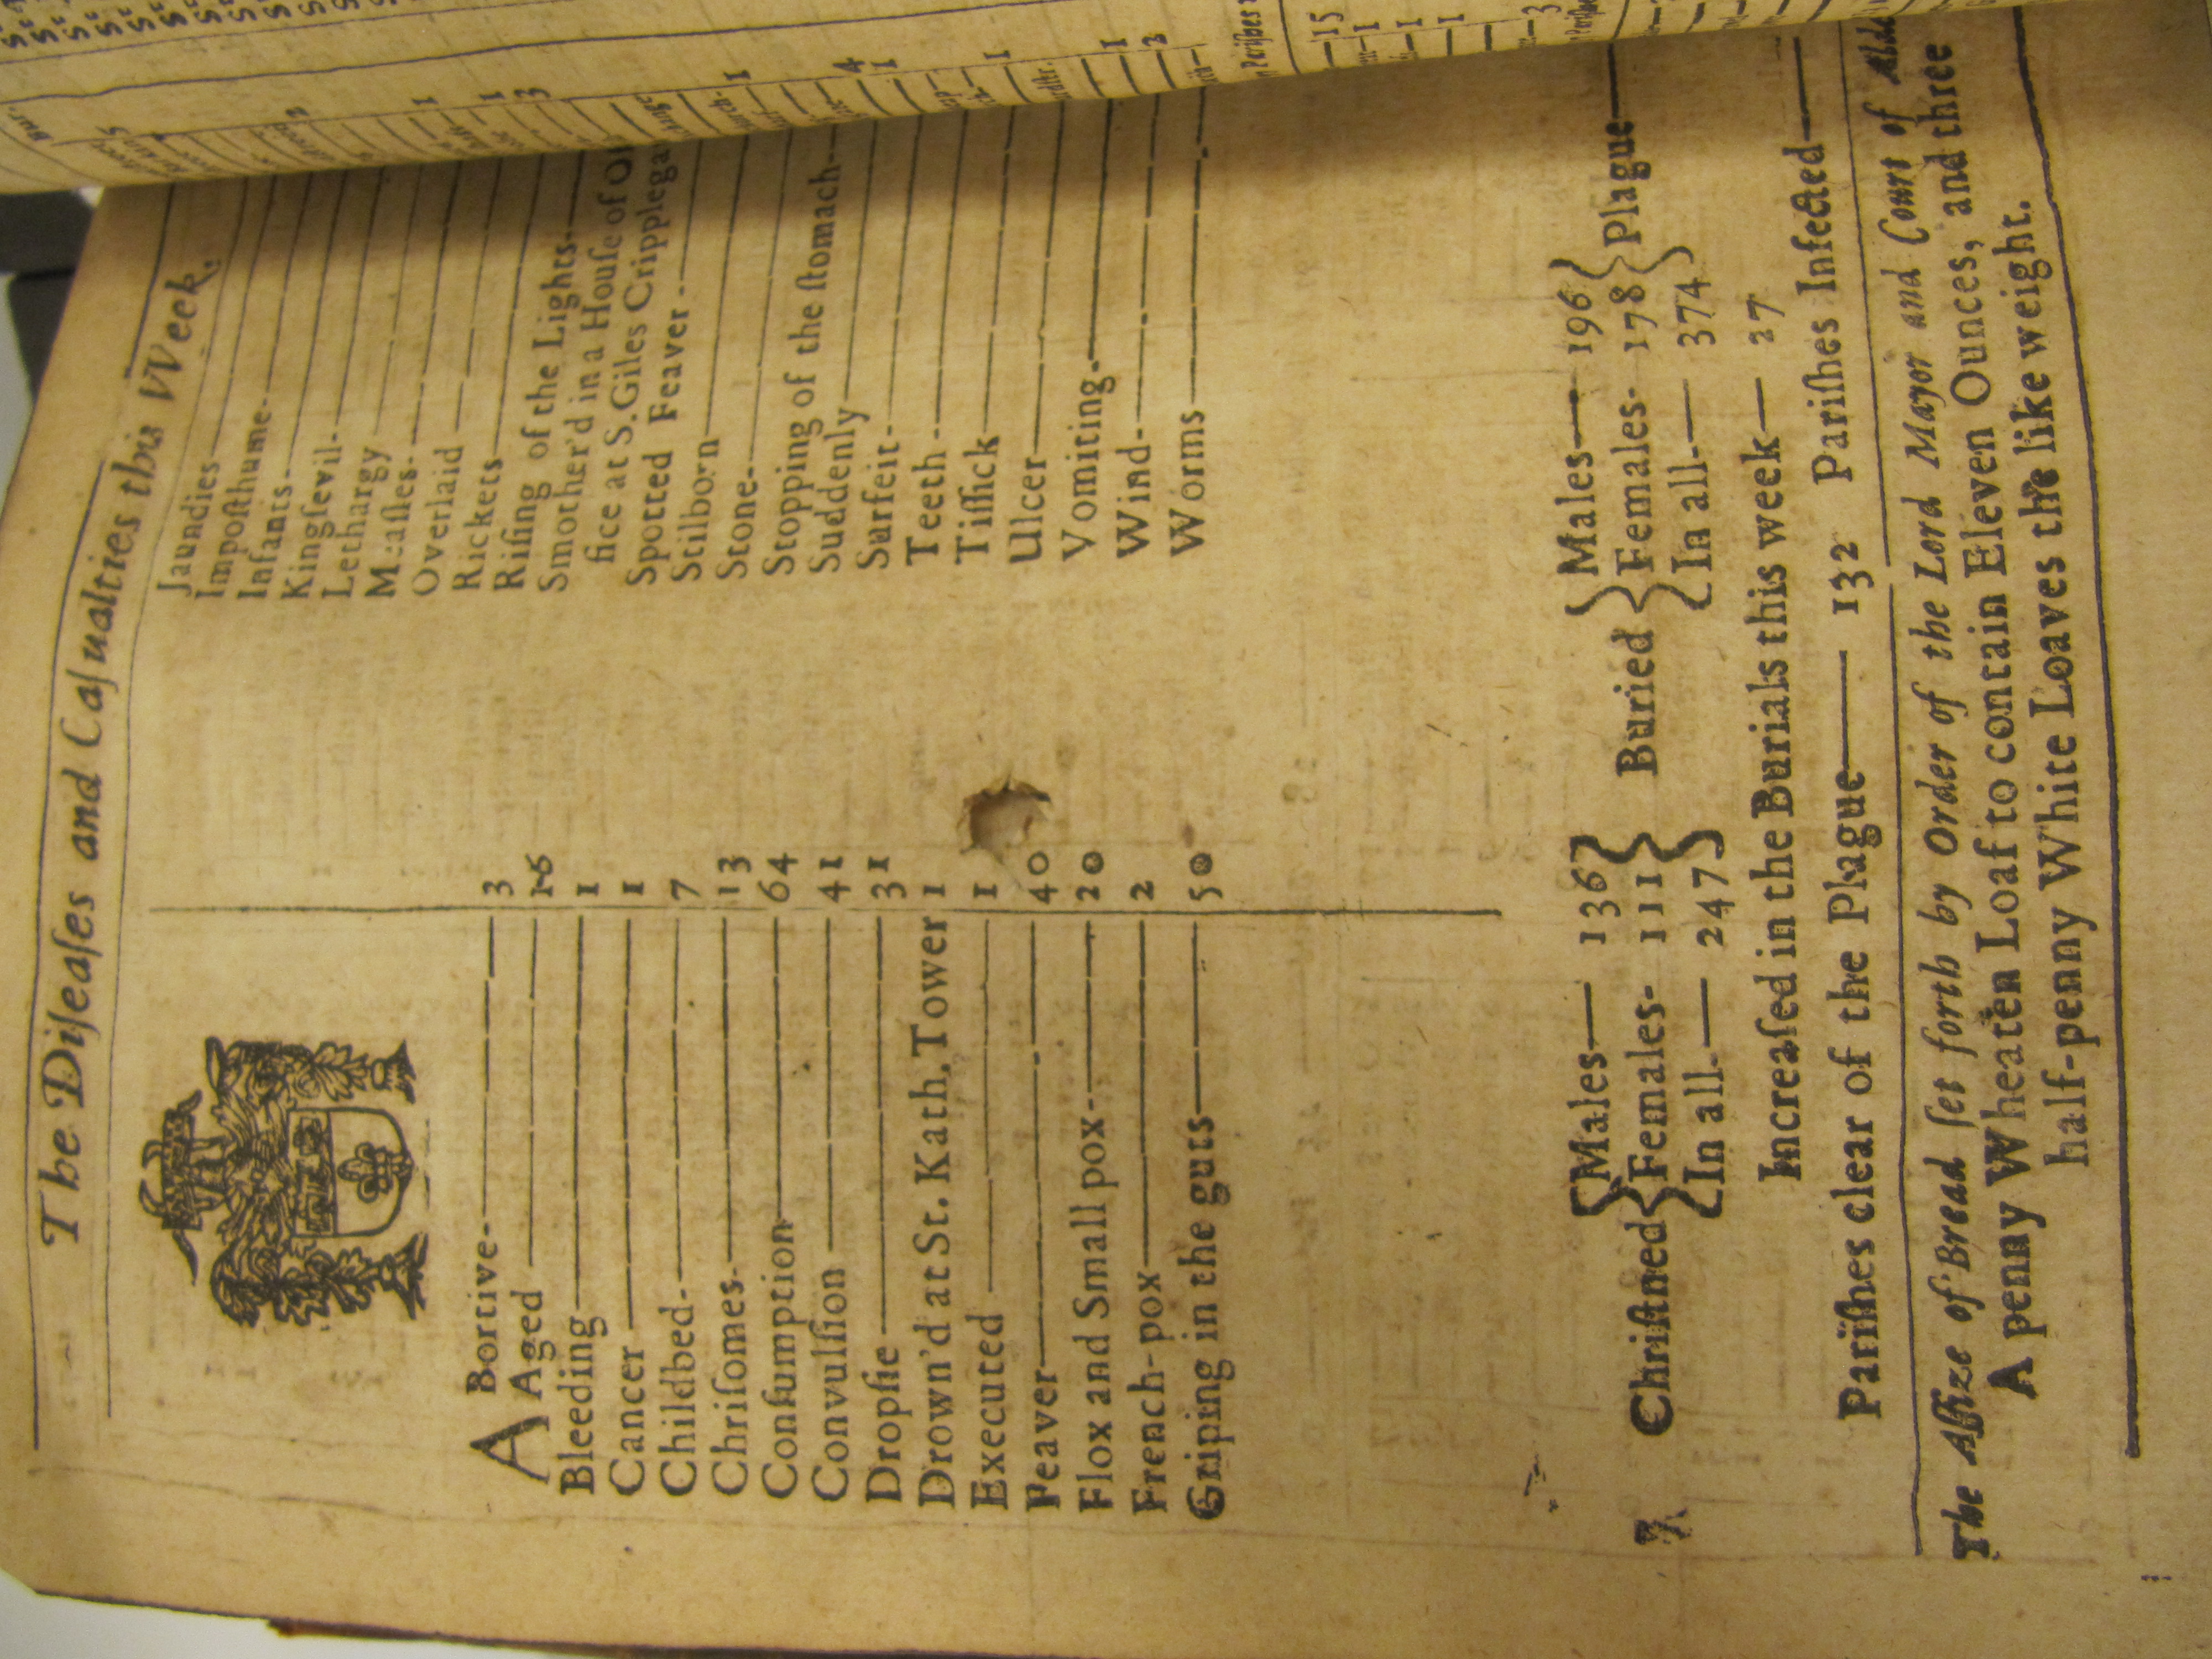 The Diſeaſes and Caſualties this Week.
Abortive 3
Aged 16
Bleeding 1
Cancer 1
Childbed 7
Chriſomes 13
Conſumption 64
Convulſion 41
Dropſie 31
Drown'd at St. Kath. Tower 1
Executed 1
Feaver 40
Flox and Small pox 20
French-pox 2
Griping in the guts 50
Jaundies
Impoſthume
Infants
Kingſevil
Lethargy
Meaſles
Overlaid
Rickets
Riſing of the Lights
Smother'd in a Houſe of
fice at S. Giles
Spotted Feaver
Stilborn
Stone
Stopping of the ſtomach
Suddenly
Surfeit
Teeth
Tiſſick
Ulcer
Vomiting
Wind
Worms
Chriſtned { Males 136 Females 111 In all 247 } Buried { Males 196 Females 178 In all 374 } Plague
Increaſed in the Burials this week 27
Pariſhes clear of the Plague 132 Pariſhes Infected
The Aſſize of Bread ſet forth by Order of the Lord Mayor and Court of
A penny Wheaten Loaf to contain Eleven Ounces, and three
half-penny White Loaves the like weight.